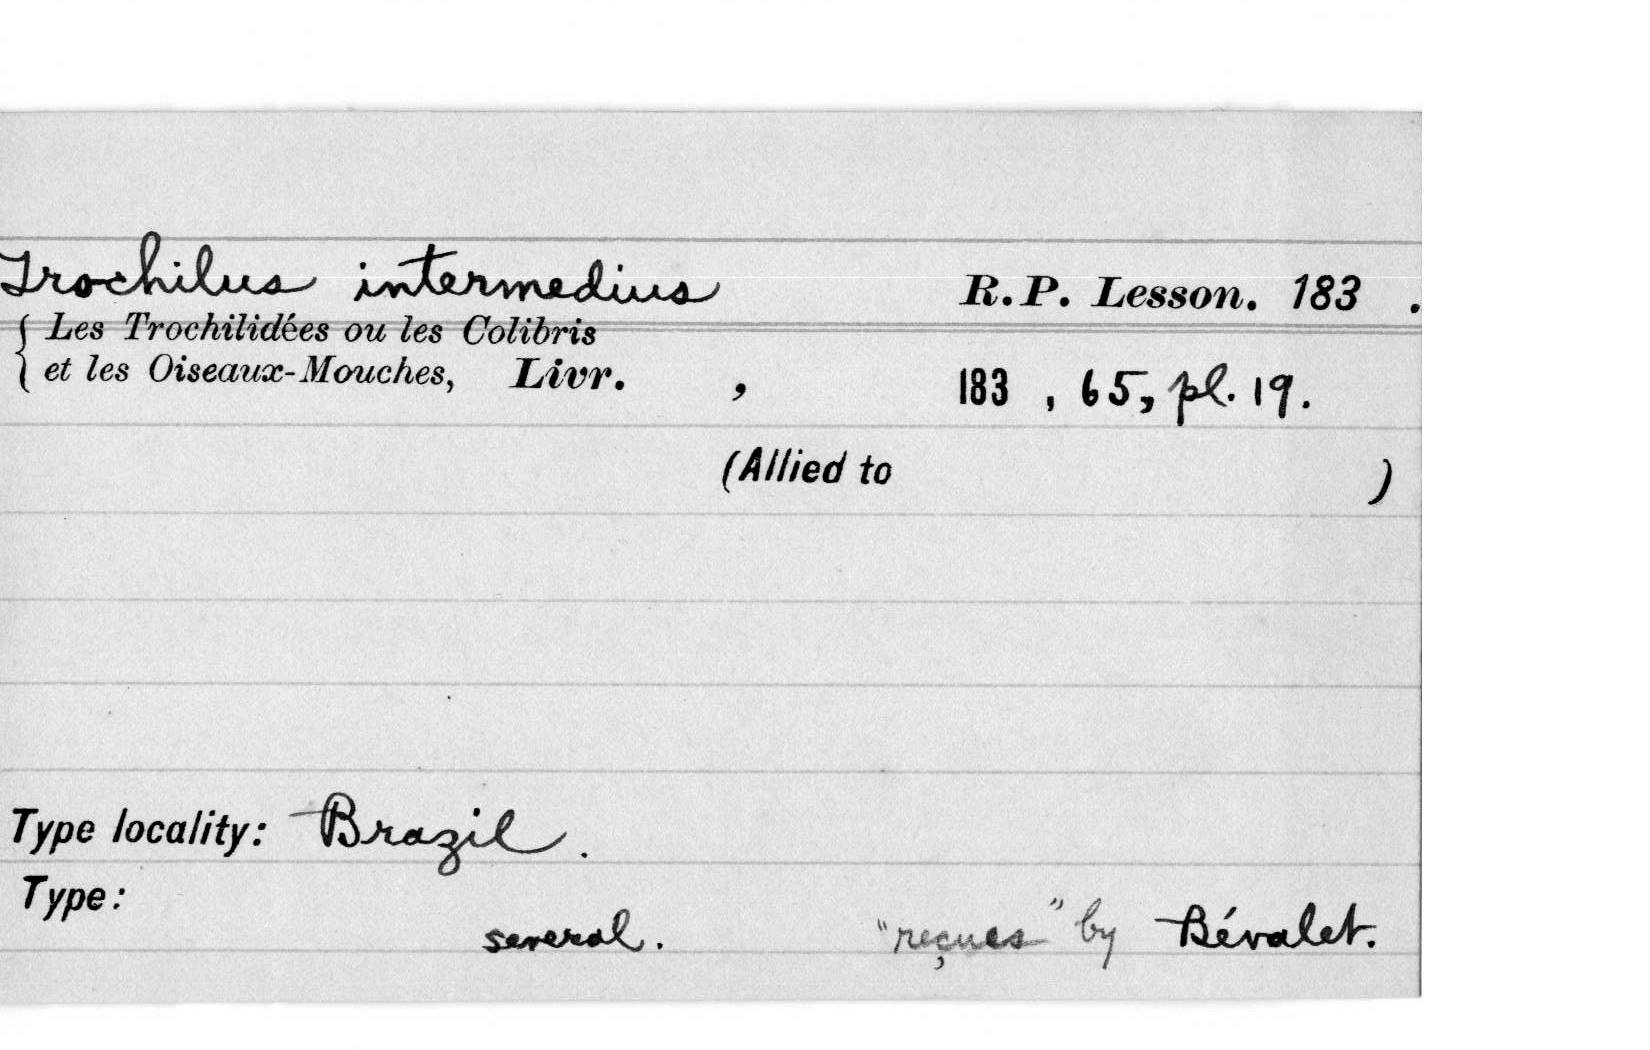 Trochilus intermedius R.P. Lesson. 183 .
{ Les Trochilidées ou les Colibris
et les Oiseaux-Mouches, Livr. , 183 , 65, pl. 19.
(Allied to )
Type locality: Brazil .
Type:
several. "reçues" by Bévalet.